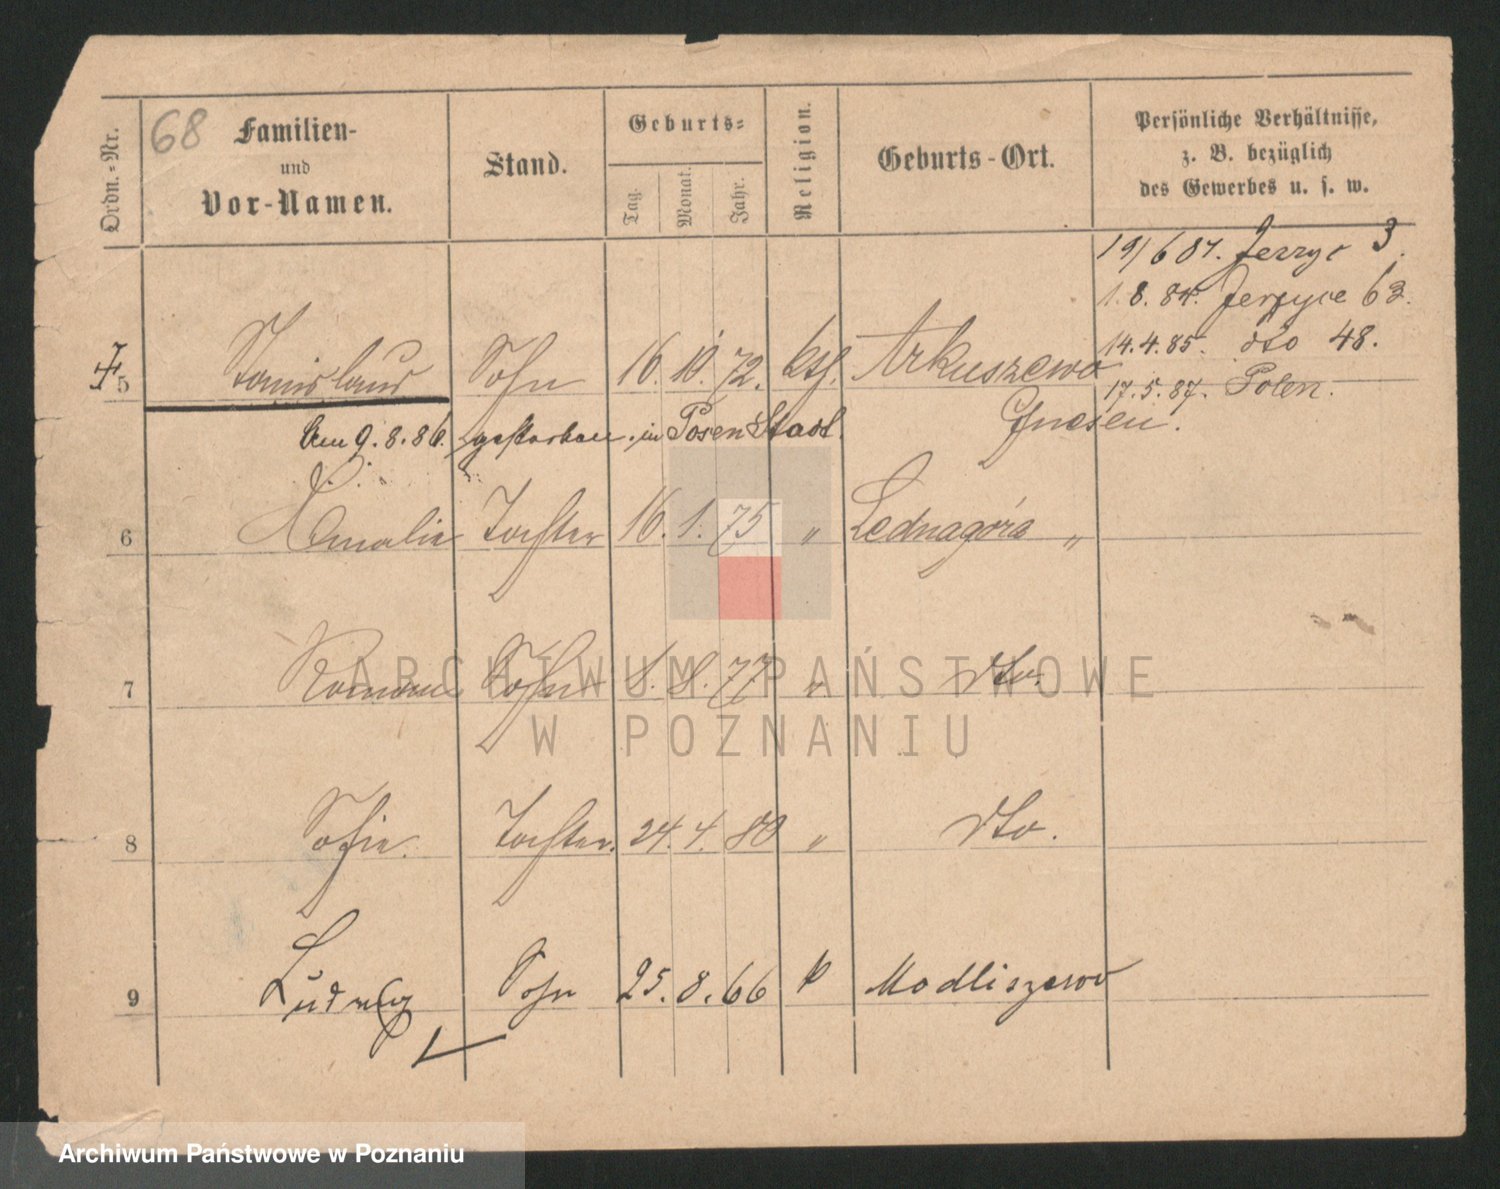 68
Ordn.-Nr.
Familien-
und
Vor-Namen.
Stand.
Geburts-
Tag.
Monat.
Jahr.
Religion.
Geburts-Ort.
Persönliche Verhältnisse,
z. B. bezüglich
des Gewerbes u. s. w.
19/6 81. Jerzyc 3.
1.8.84. Jerzyce 63.
14.4.85. dto 48.
17.5.87. Polen.
5 Stanislaus Sohn 16. 10. 72. kth. Arkuszewo
Gnesen.
Am 9.8.86. gestorben in Posen Stadt.
6 Amalie Tochter 16. 1. 75 " Lednagóra "
7 Roman Sohn 8. 8. 77 " dto.
8 Sofie. Tochter. 24. 4. 80 " dto.
9 Ludwig Sohn 25. 8. 66 k Modliszewo
ARCHIWUM PAŃSTWOWE
W POZNANIU
Archiwum Państwowe w Poznaniu